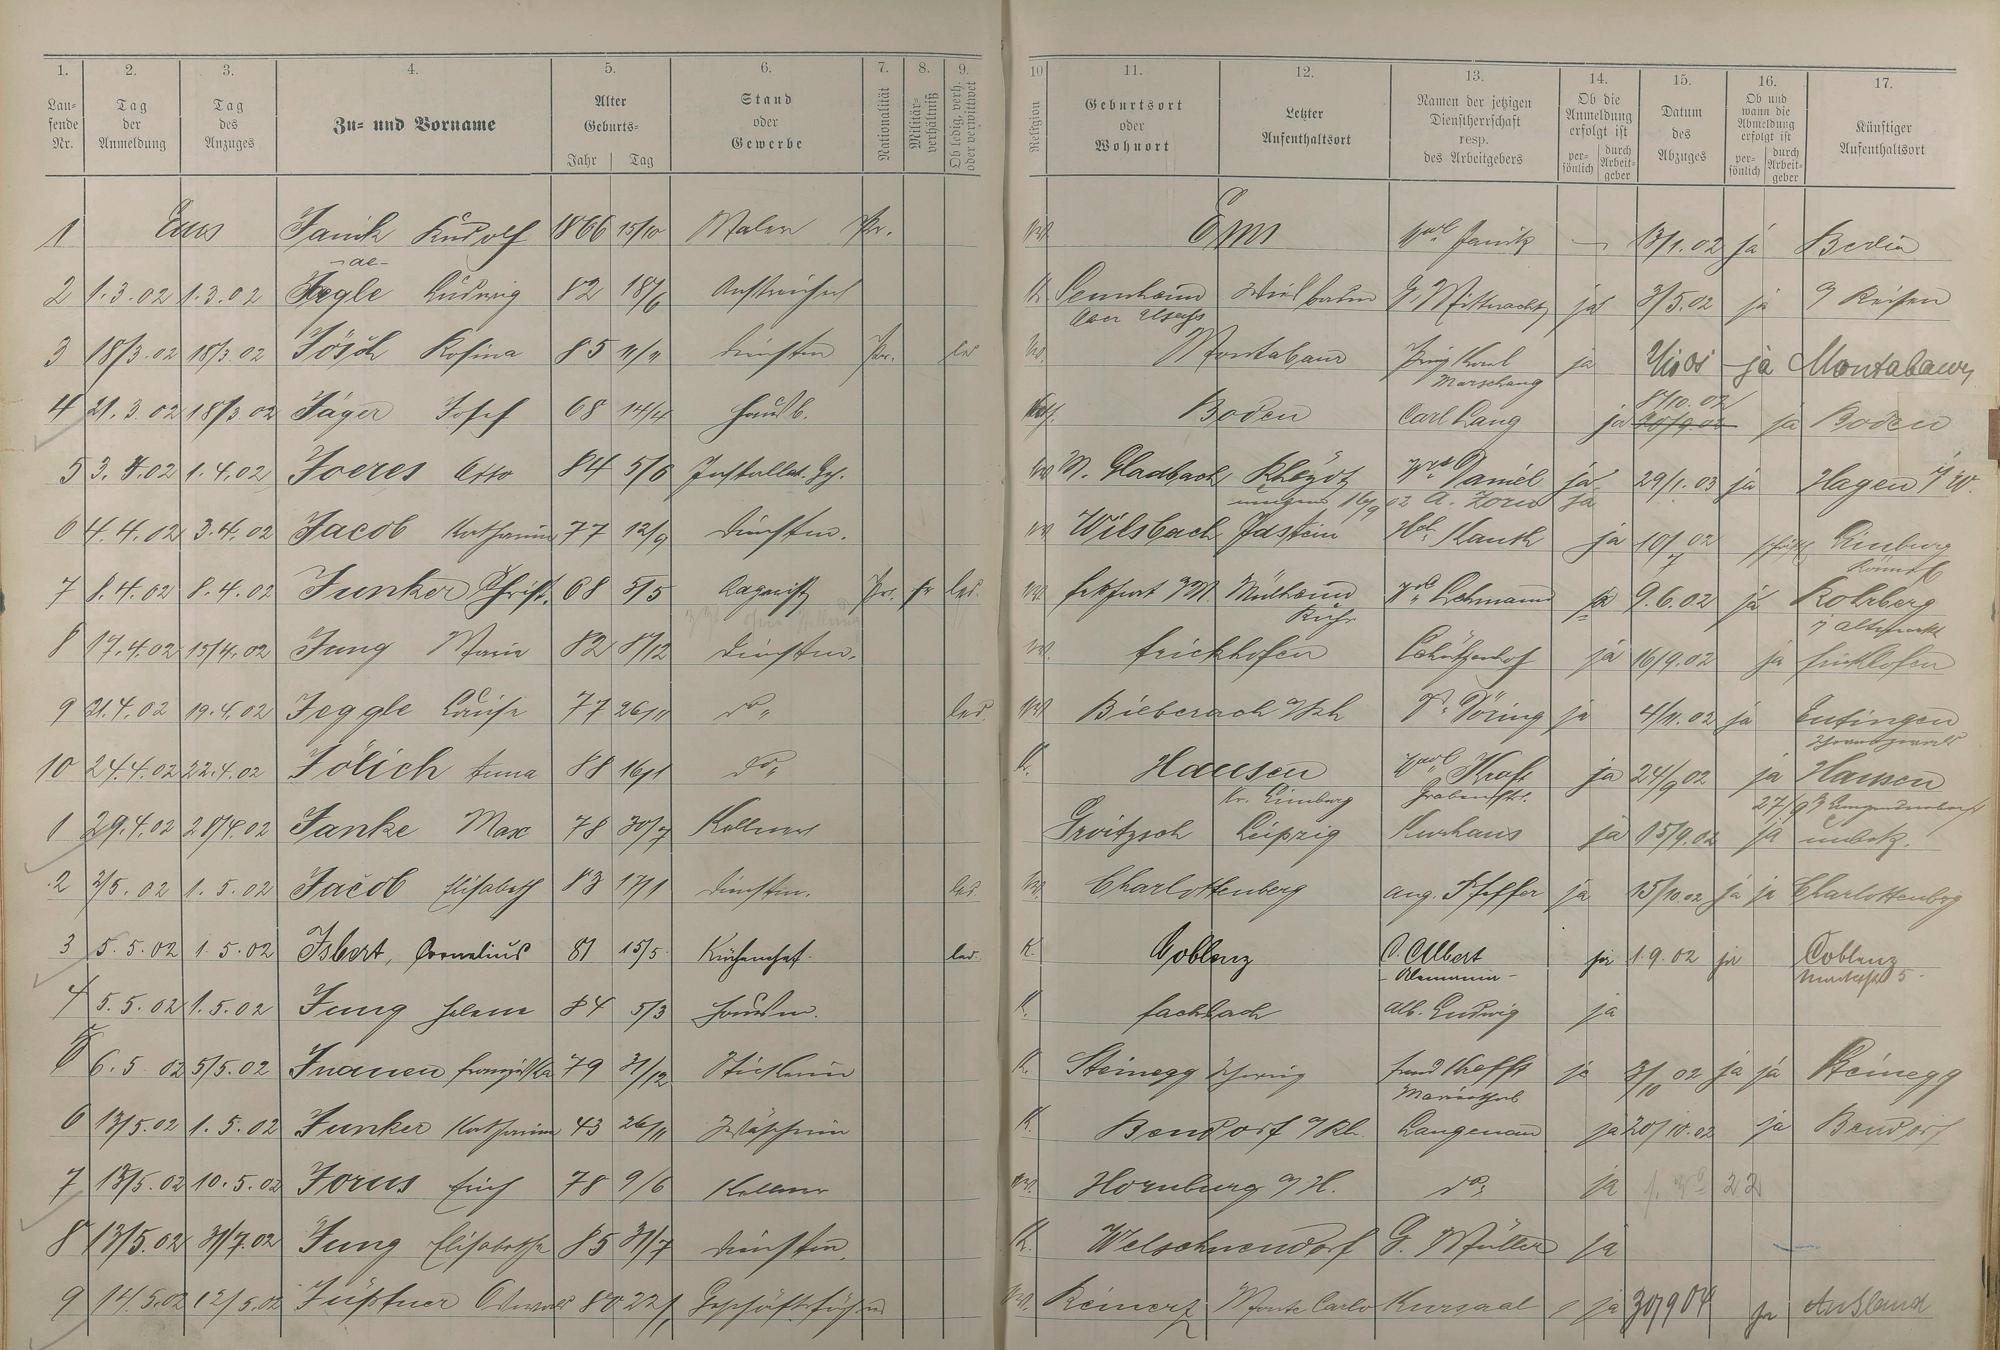 1. 2. 3. 4. 5. 6. 7. 8. 9. 10 11. 12. 13. 14. 15. 16. 17.
Lau-
fende
Nr.
Tag
der
Anmeldung
Tag
des
Anzuges
Zu- und Vorname
Alter
Geburts-
Jahr Tag
Stand
oder
Gewerbe
Nationalität
Militär-
verhältniß
Ob ledig, verh.
oder verwittwet
Religion
Geburtsort
oder
Wohnort
Letzter
Aufenthaltsort
Namen der jetzigen
Dienstherrschaft
resp.
des Arbeitgebers
Ob die
Anmeldung
erfolgt ist
per-
sönlich
durch
Arbeit-
geber
Datum
des
Abzuges
Ob und
wann die
Abmeldung
erfolgt ist
per-
sönlich
durch
Arbeit-
geber
Künftiger
Aufenthaltsort
1 Ems Janik Rudolf 1866 15/10 Maler Pr. Ems Janik 13/1.02 ja Berlin
-ae-
2 1.3.02 1.3.02 Jegle Ludwig 82 18/6 Anstreicher K. Sennheim Wiesbaden G. Mittnacht ja 3/5.02 ja a/ Reisen
Ober Elsass
3 18/3.02 18/3.02 Jösch Rosina 85 11/11 Dienstm Pr. led Montabaur ja ja Montabaur
4 21.3.02 18/3.02 Jäger Josef 68 14/4 Hausb. Boden Carl Lang ja 8/10.02 ja Boden
5 3.4.02 1.4.02 Joeres Otto 84 5/6 Installat. Gh. M. Gladbach Rheydt Daniel ja 29/1.03 ja Hagen i/W.
16/9 02 A. Zorn ja
6 4.4.02 3.4.02 Jacob Katharina 77 12/9 Dienstm. Wilsbach Idstein ja 10/7 02 Limburg
7 8.4.02 8.4.02 Junker Christ. 68 5/5 Pr. led. Frkfurt a/M. Mülheim Lehmann ja 9.6.02 ja Rohrberg
Ruhr
8 17.4.02 15/4.02 Jung Maria 82 8/12 Dienstm. Frickhofen Schützenhof ja 16/9.02 ja Frickhofen
9 21.4.02 19.4.02 Jeggle Luise 77 26/11 do " led. Bieberach a/Rh Döring ja 4/11.02 ja Eutingen
10 24.4.02 22.4.02 Jölich Anna 88 16/1 do " K. Hausen ja 24/9 02 ja Hausen
Kr. Limburg Grabenstr.
1 29.4.02 28/4.02 Janke Max 78 30/7 Kellner Groitzsch Leipzig Kurhaus ja 15/9.02 ja unbek.
2 2/5.02 1.5.02 Jacob Elisabeth 83 17/1 Dienstm. led. Charlottenberg Aug. Pfeffer ja 15/10.02 ja ja Charlottenbrg
3 5.5.02 1.5.02 Isbert, Cornelius 81 15/5. Küchenchef. led. K. Coblenz C. Albert ja 1.9.02 ja Coblenz
- Alemannia -
4 5.5.02 1.5.02 Jung Helene 84 5/3 Hausm. K. Fachbach Alb. Ludwig ja
5 6.5 02 5/5.02 Inauen Franziska 79 31/12 Stickerin K. Steinegg Schweiz ja 3/10 02 ja ja Steinegg
6 13/5.02 1.5.02 Junker Katharina 43 26/11 Wäscherin K. Bendorf a/Rh. Langenau ja 20/10.02 ja Bendorf
7 13/5.02 10.5.02 Jorus Erich 78 9/6 Kellner Hornburg a/H. do " ja
8 13/5.02 31/7.02 Jung Elisabetha 85 31/7 Dienstm. K. Welschneudorf G. Müller ja
9 14.5.02 12/5.02 Jüptner 80 Geschäftsführer Reinerz Monte Carlo Kursaal ja 30/9 04 ja Ausland